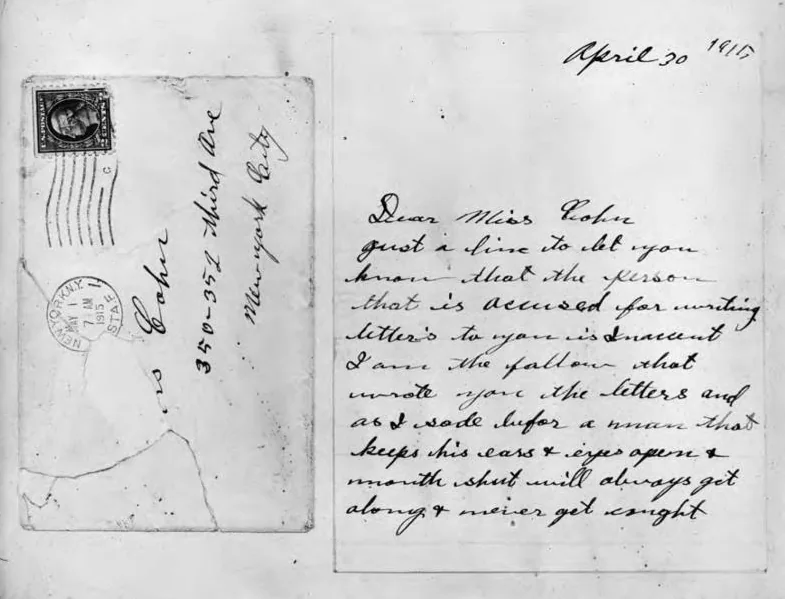 U.S. POSTAGE
2 CENTS 2
NEW YORK, N.Y.
STA. F
MAY 1
7 AM
1915
rs Cohn
350-352 Third Ave
New york City
April 30 1915
Dear Miss Cohn
just a line to let you
know that the person
that is accused for writing
letter's to you is Inacent
I am the fallow that
wrote you the letters and
as I sade befor a man that
keeps his ears & eyes open &
mouth shut will always get
along & never get cought